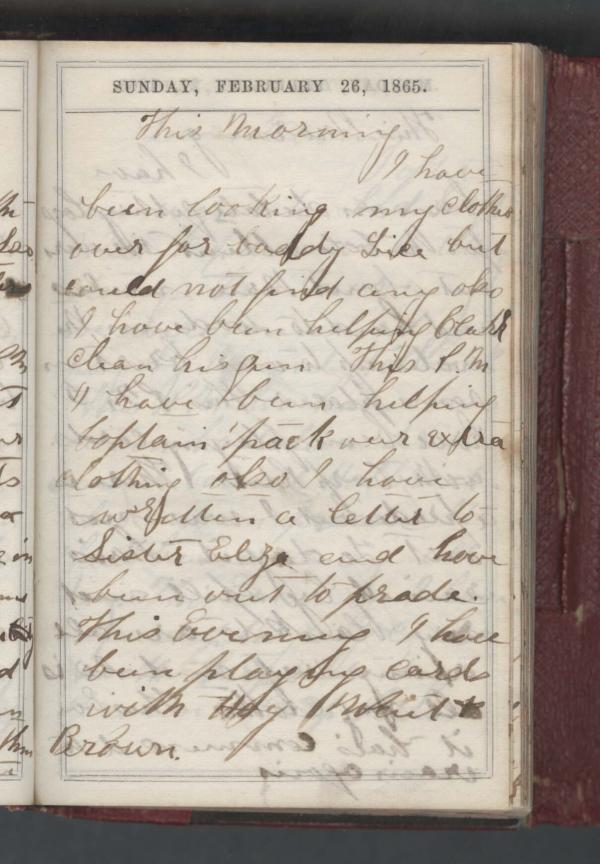 SUNDAY, FEBRUARY 26, 1865.
This Morning
I have
been looking my clothes
over for boddy Lice but
could not find any also
I have been helping Clark
clean his gun This P.M
I have been helping
Captain pack our extra
clothing also I have
written a letter to
Sister Eliza and have
been out to prade.
This Evening I have
been playing cards
with Hoy &
Brown.